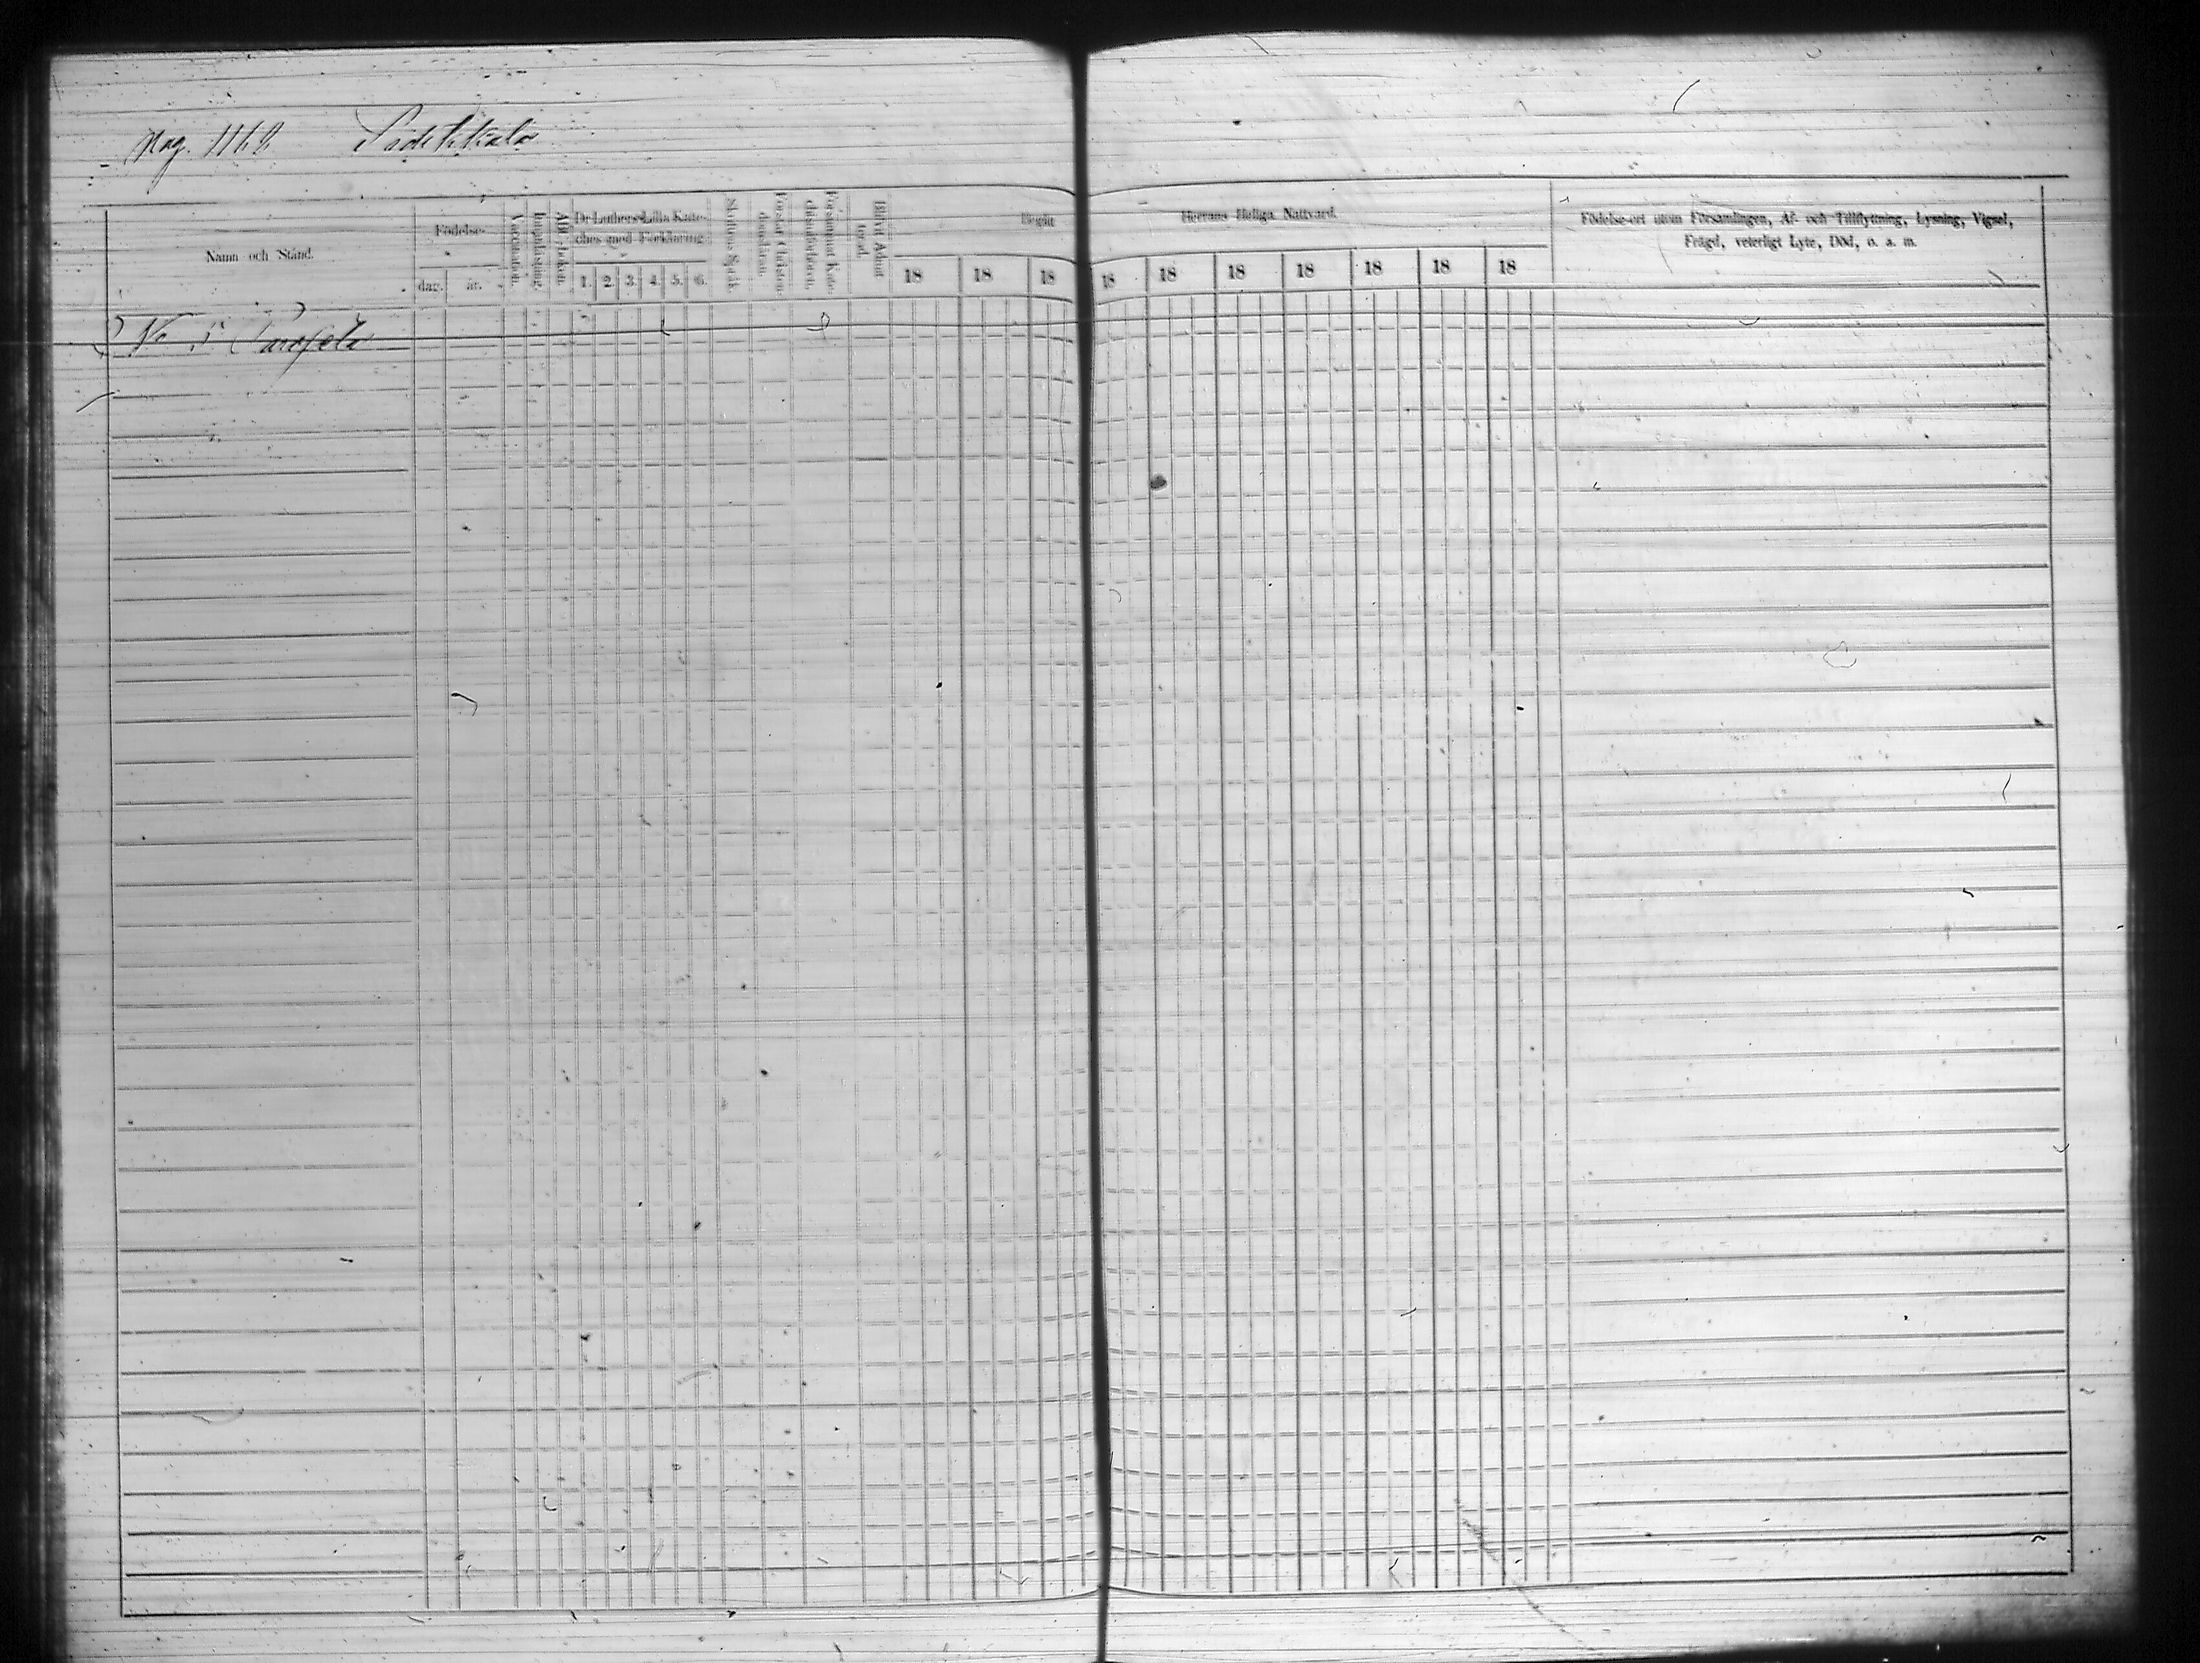 Pag. 1168
Namn och Stånd.
Födelse-
dag.
år.
Vaccination.
Innanläsning.
ABC-boken.
Dr Luthers Lilla Kate-
ches med Förklaring.
1. 2. 3. 4. 5. 6.
Skriftens Språk.
Förstår Christen-
domsläran.
Försummat Kate-
chismiförhören.
Blifvit Admit-
terad.
Begått Herrans Heliga Nattvard.
18 18 18 18 18 18 18 18 18 18
Födelse-ort utom Församlingen, Af- och Tillflyttning, Lysning, Vigsel,
Frägd, veterligt Lyte, Död, o. a. m.
No 5